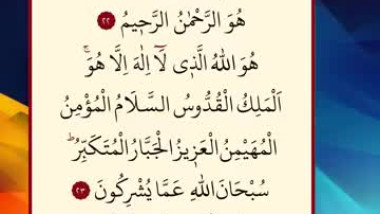 هُوَ الرَّحْمٰنُ الرَّحٖيمُ ﴿٢٢﴾
هُوَ اللّٰهُ الَّذٖى لَآ اِلٰهَ اِلَّا هُوَۚ
اَلْمَلِكُ الْقُدُّوسُ السَّلَامُ الْمُؤْمِنُ
الْمُهَيْمِنُ الْعَزٖيزُ الْجَبَّارُ الْمُتَكَبِّرُؕ
سُبْحَانَ اللّٰهِ عَمَّا يُشْرِكُونَ ﴿٢٣﴾